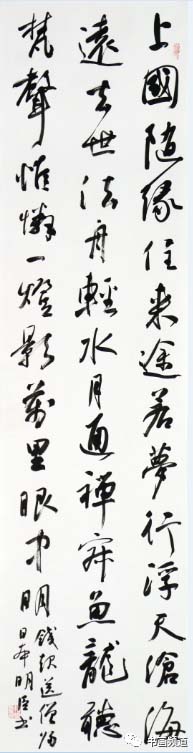 上國隨緣住來途若夢行浮天滄海
遠去世法舟輕水月通禪寂魚龍聽
梵聲惟憐一燈影萬里眼中明
錢起送僧歸
日本明臣書
书画频道